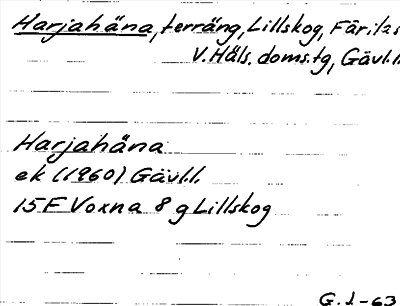 Harjahäna, terräng, Lillskog, Färila s
V. Häls. doms.tg, Gävl.l.
Harjahäna
ek (1960) Gävl.l.
15 F Voxna 8 g Lillskog
G. J-63